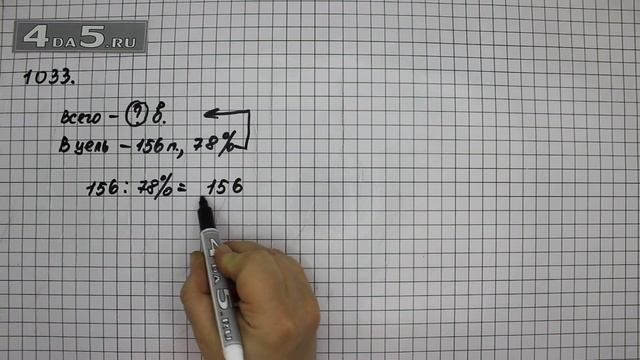 4DA5.RU
1033.
всего – ? в.
В цель – 156 п., 78%
156 : 78% = 156
4 DA 5.RU